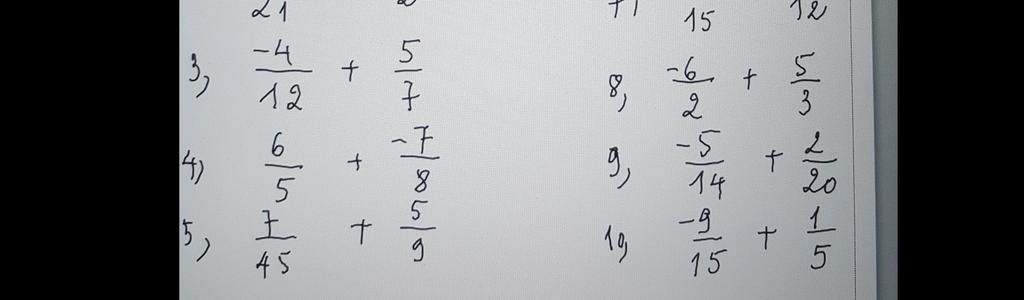 21 15 12
3, -4/12 + 5/7
4, 6/5 + -7/8
5, 7/45 + 5/9
8, -6/2 + 5/3
9, -5/14 + 2/20
10, -9/15 + 1/5